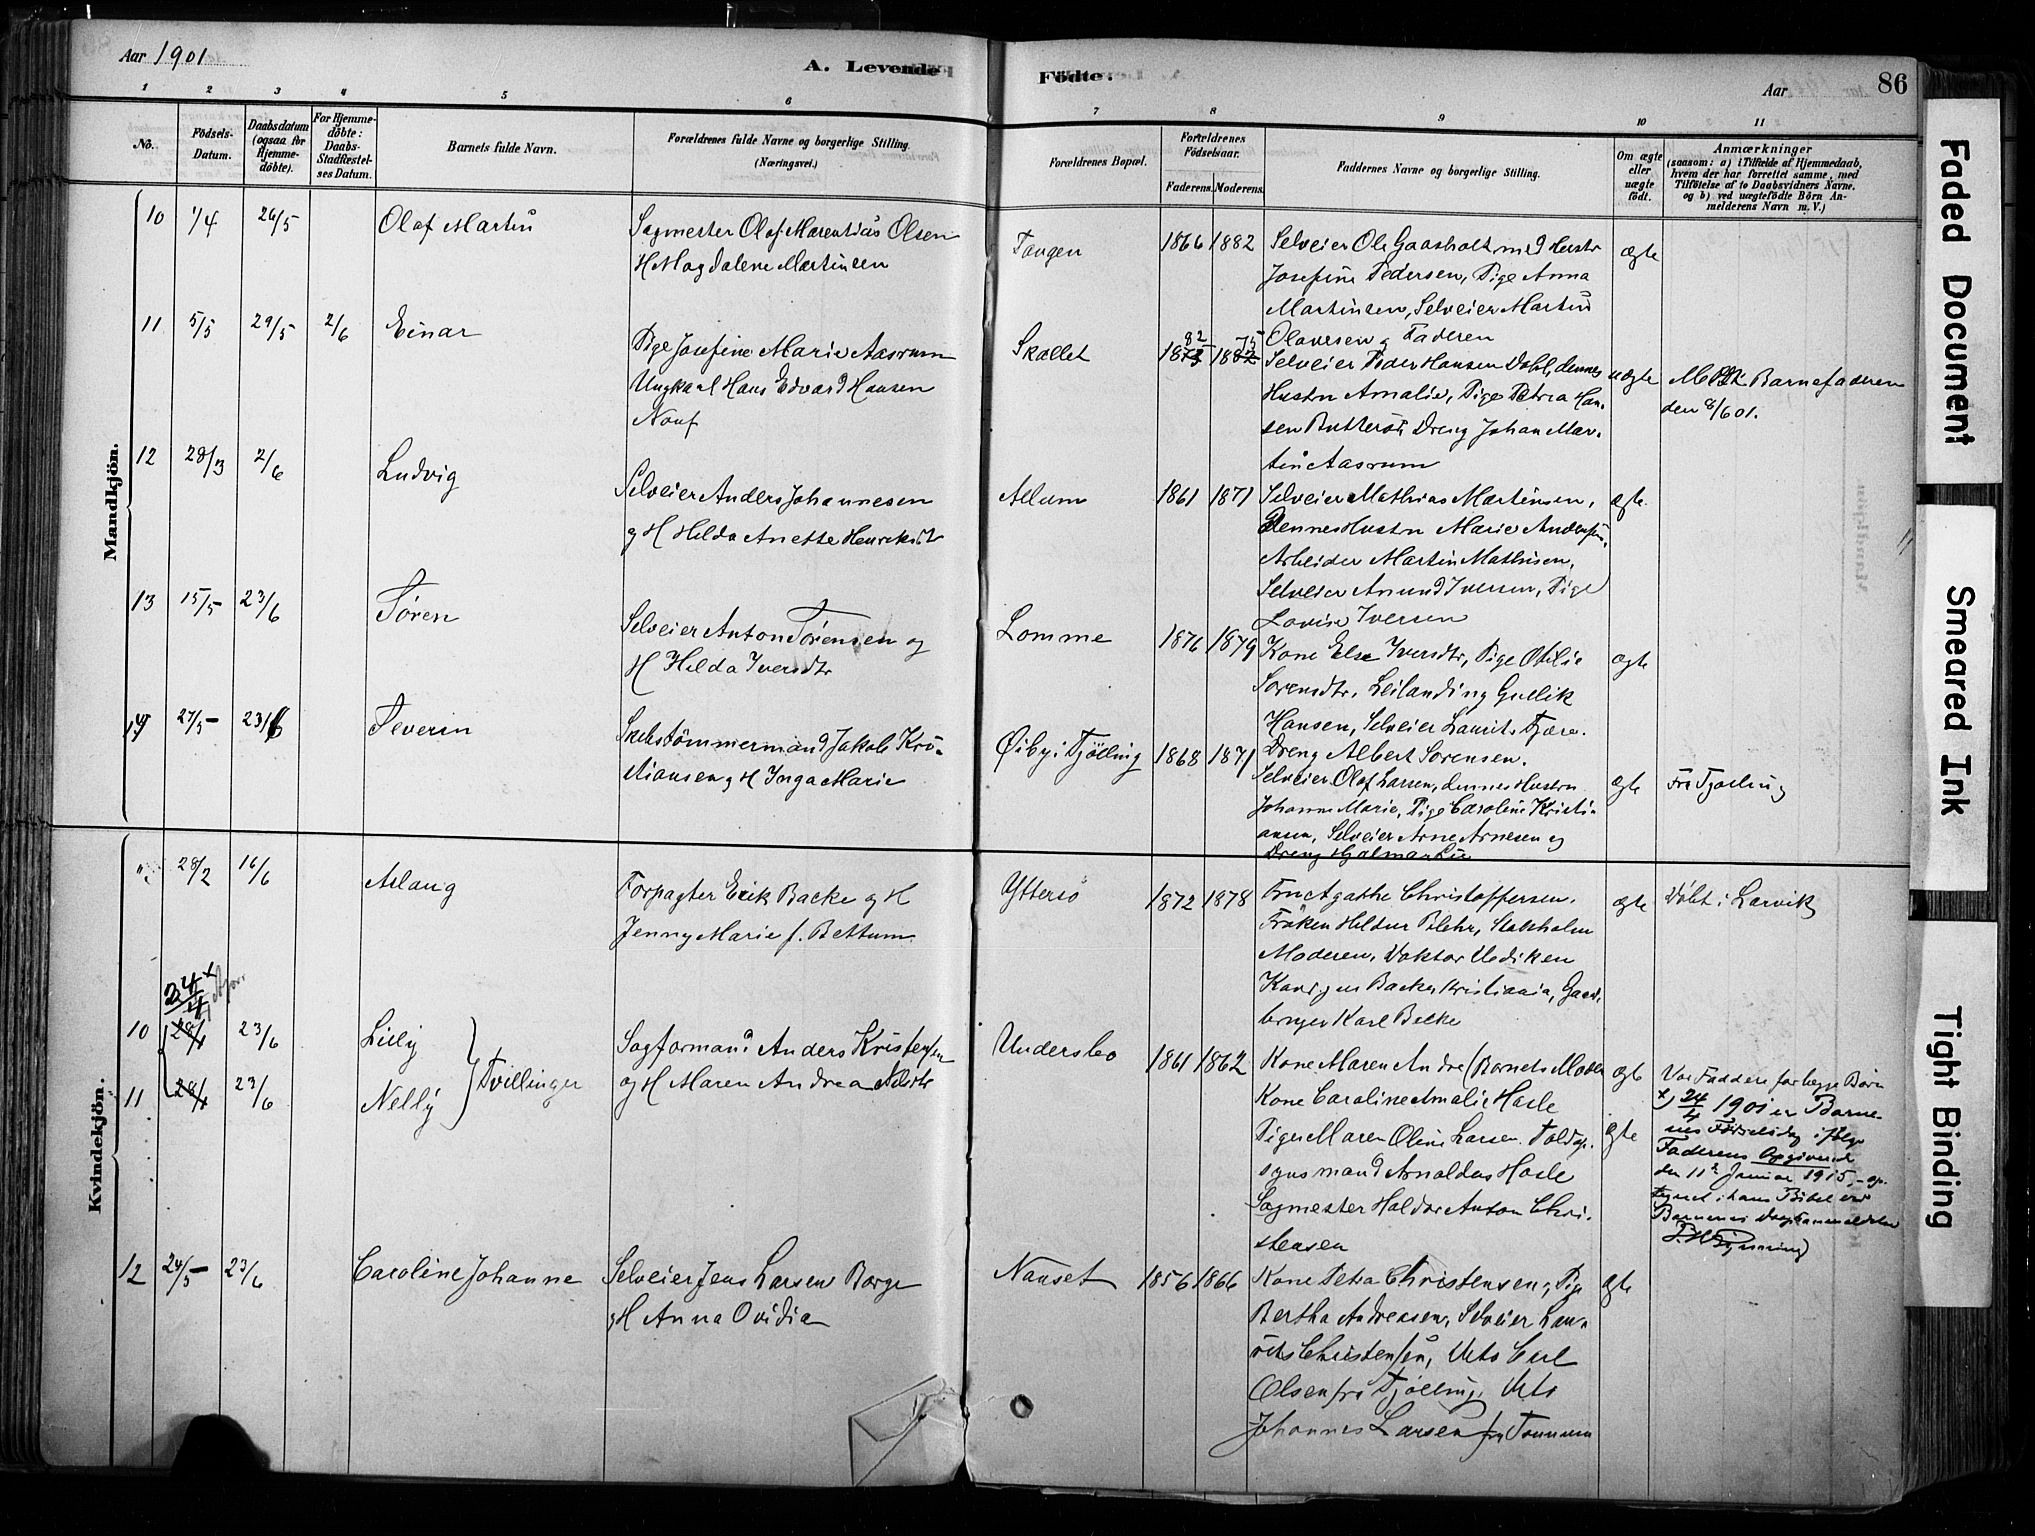 Aar 1901
A. Levende
Födte.
Aar
86
1 2 3 4 5 6 7 8 9 10 11
No.
Födsels-
Datum.
Daabsdatum
(ogsaa for
Hjemme-
döbte).
For Hjemme-
döbte:
Daabs-
Stadfæstel-
ses Datum.
Barnets fulde Navn.
Forældrenes fulde Navne og borgerlige Stilling.
(Næringsvei.)
Forældrenes Bopæl.
Forældrenes
Födselsaar.
Faderens. Moderens.
Faddernes Navne og borgerlige Stilling.
Om ægte
eller
uægte
födt.
Anmærkninger
(saasom: a) i Tilfælde af Hjemmedaab,
hvem der har forrettet samme, med
Tilföielse af to Daabsvidners Navne.
og b) ved uægtefödte Börn An-
melderens Navn m. V.)
Mandkjön.
10 1/4 26/5 Olaf Martin
Sagmester Olaf Marentius Olsen
H Magdalene Martinsen
Tangen 1866 1882
Selveier Ole Gaasholt med Hustr
Josefine Pedersen, Pige Anna
Martinsen, Selveier Martin
Olavesen g Faderen
ægte
11 5/5 29/5 2/6 Einar
Pige Josefine Marie Aasrum
Ungkarl Hans Edvard Hansen
Nauf
Skallet 82 75
Selveier Peder Hansen Dahl, dennes
Hustru Amalie, Pige Petra Han-
sen Butterös, Dreng Johan Mar-
tin Aasrum
uægte
Barnefaderen
den 8/6 01.
12 28/3 2/6 Ludvig
Selveier Anders Johannesen
g H Hilda Anette Henriksdt
Allum 1861 1871
Selveier Mathias Martinsen,
dennes Hustru Marie Andersen,
Arbeider Martin Mathisen,
Selveier Amund Iversen, Pige
Lovise Iversen
ægte.
13 15/5 23/6 Sören
Selveier Anton Sörensen og
H Hilda Iversdtr
Lomme 1876 1879
Kone Else Iversdtr, Pige Otilie
Sorensdtr, Leilending Gullik
Hansen, Selveier Laurits Fjære.
Dreng Albert Sorensen.
ægte
14 27/5 23/6 Severin
Skibstömmermand Jakob Kri-
stiansen g H Inga Marie
Öiby i Tjölling 1868 1871
Selveier Olaf Larsen, dennes Hustru
Johanne Marie, Pige Caroline Kristi-
ansen, Selveier Arne Arnesen og
Dreng Hjalmar Lie
ægte
Fra Tjölling
Kvindekjön.
28/2 16/6 Aslaug
Forpagter Erik Backe g H
Jenny Marie f. Bettum
Ytterso 1872 1878
Fru Agathe Christoffersen.
Fröken Hildur Blehr, Stockholm
Moderen, Doktor
Backe, Kristiania, Gaard-
bruger Karl Belke
ægte
Döbt i Larvik
24/4
10 28/4 23/6 Lilly
11 28/4 23/6 Nelly
Tvillinger
Sagformand Anders Kristensen
og H Maren Andrea
Undersbo 1861 1862
Kone Maren Andre (Barnets Moder
Kone Caroline Amalie Hasle
Pige Maren Oline Larsen. Toldop-
synsmand Arnoldus Hasle
Sagmester Haldor Anton Chri-
stensen
ægte
ægte
Var Faddere for begge Börn
x) 24/4 1901 er Barne-
nes Födselsdag ifölge
Faderens Opgivende
den 11te Januar 1915, - op-
tegnet i hans Bibel ved
Barnenes
12 24/5 23/6 Caroline Johanne
Selveier Jens Larsen Borge
g H Anna Ovidia
Nanset 1856 1866
Kone Petra Christensen, Pige
Bertha Andreasen, Selveier Lau-
rits Christensen, Urts Carl
Olsen fra Tjölling, Urts
Johannes Larsen fra Tanum
ægte
Faded Document
Smeared Ink
Tight Binding